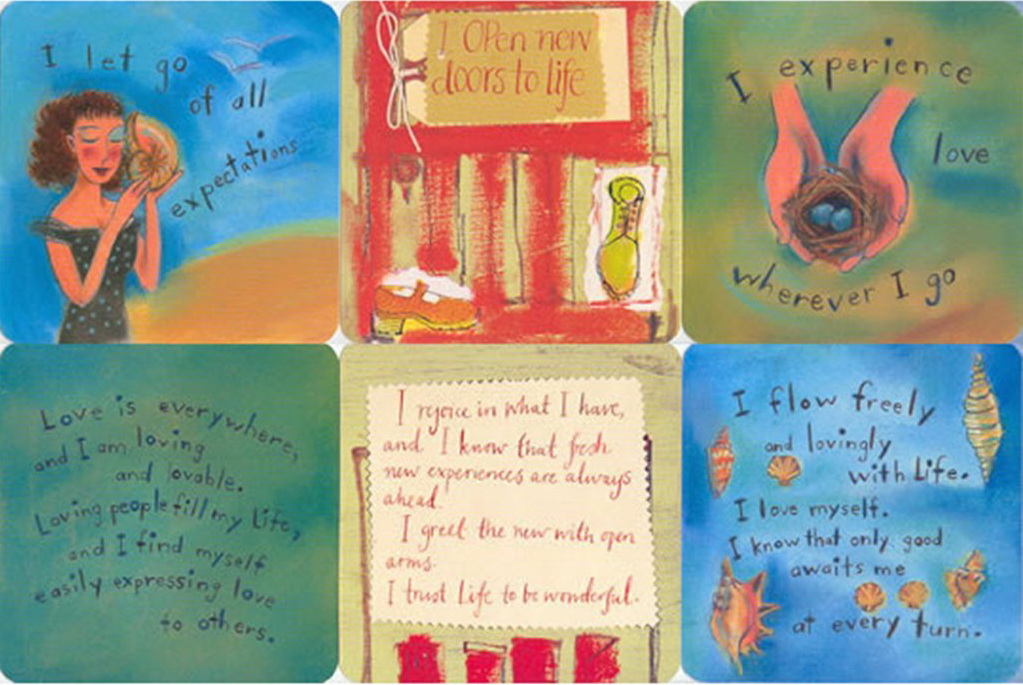 I let go
of all
expectations
I Open new
doors to life
I experience
love
wherever I go
Love is everywhere,
and I am loving
and lovable.
Loving people fill my life,
and I find myself
easily expressing love
to others.
I rejoice in what I have,
and I know that fresh
new experiences are always
ahead.
I greet the new with open
arms.
I trust Life to be wonderful.
I flow freely
and lovingly
with Life.
I love myself.
I know that only good
awaits me
at every turn.